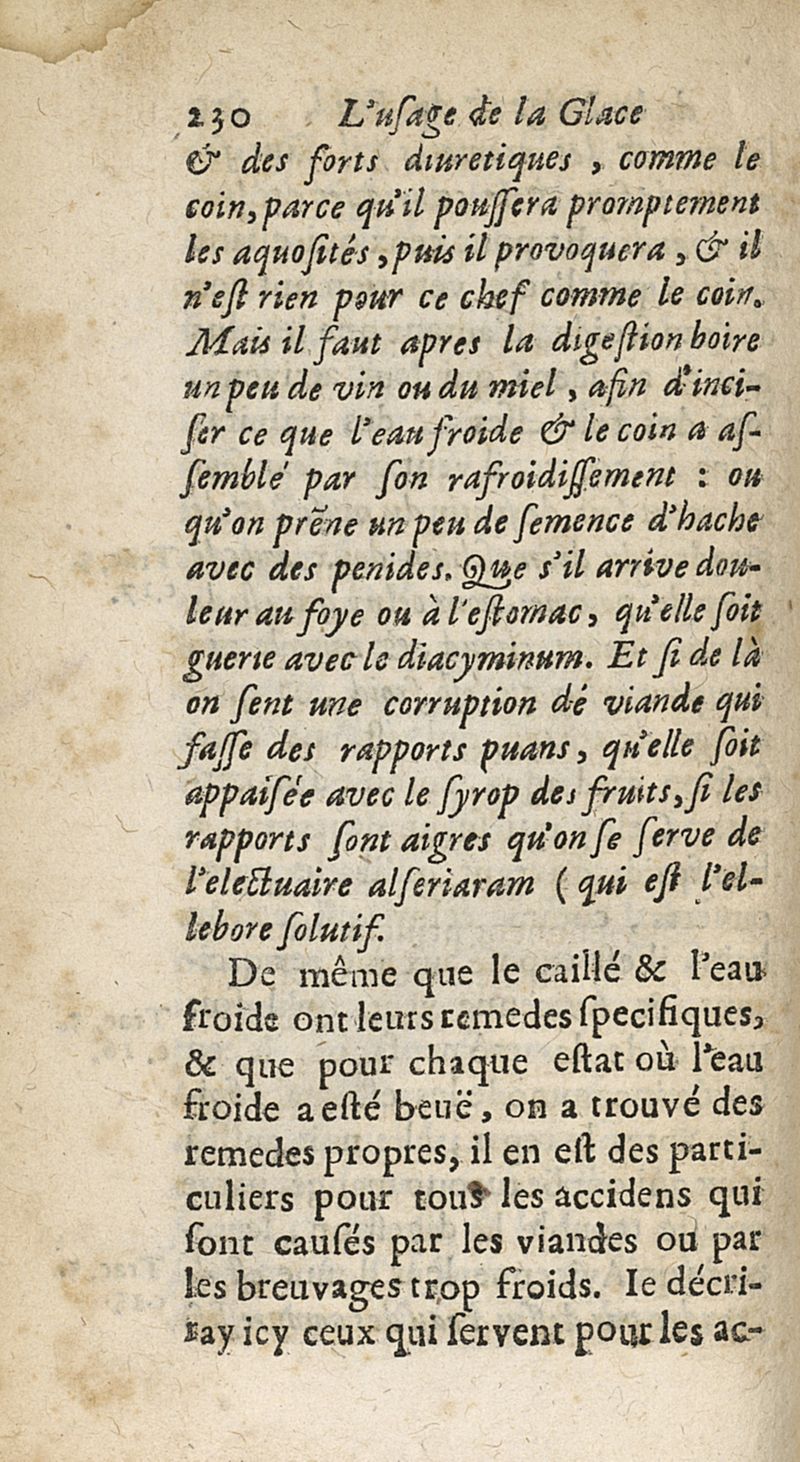 230 L'uſage de la Glace
& des forts diuretiques, comme le
coin, parce qu'il pouſſera promptement
les aquoſités, puis il provoquera, & il
n'eſt rien pour ce chef comme le coin.
Mais il faut apres la digeſtion boire
un peu de vin ou du miel, afin d'inci-
ſer ce que l'eau froide & le coin a aſ-
ſemblé par ſon rafroidiſſement : ou
qu'on prẽne un peu de ſemence d'hache
avec des penides. Que s'il arrive dou-
leur au foye ou à l'eſtomac, qu'elle ſoit
guerie avec le diacyminum. Et ſi de là
on ſent une corruption dé viande qui
faſſe des rapports puans, qu'elle ſoit
appaiſée avec le ſyrop des fruits, ſi les
rapports ſont aigres qu'on ſe ſerve de
l'electuaire alſeriaram ( qui eſt l'el-
lebore ſolutif.
De même que le caillé & l'eau
froide ont leurs remedes ſpecifiques,
& que pour chaque eſtat où l'eau
froide a eſté beuë, on a trouvé des
remedes propres, il en eſt des parti-
culiers pour tous les accidens qui
ſont cauſés par les viandes ou par
les breuvages trop froids. Ie décri-
ray icy ceux qui ſervent pour les ac-